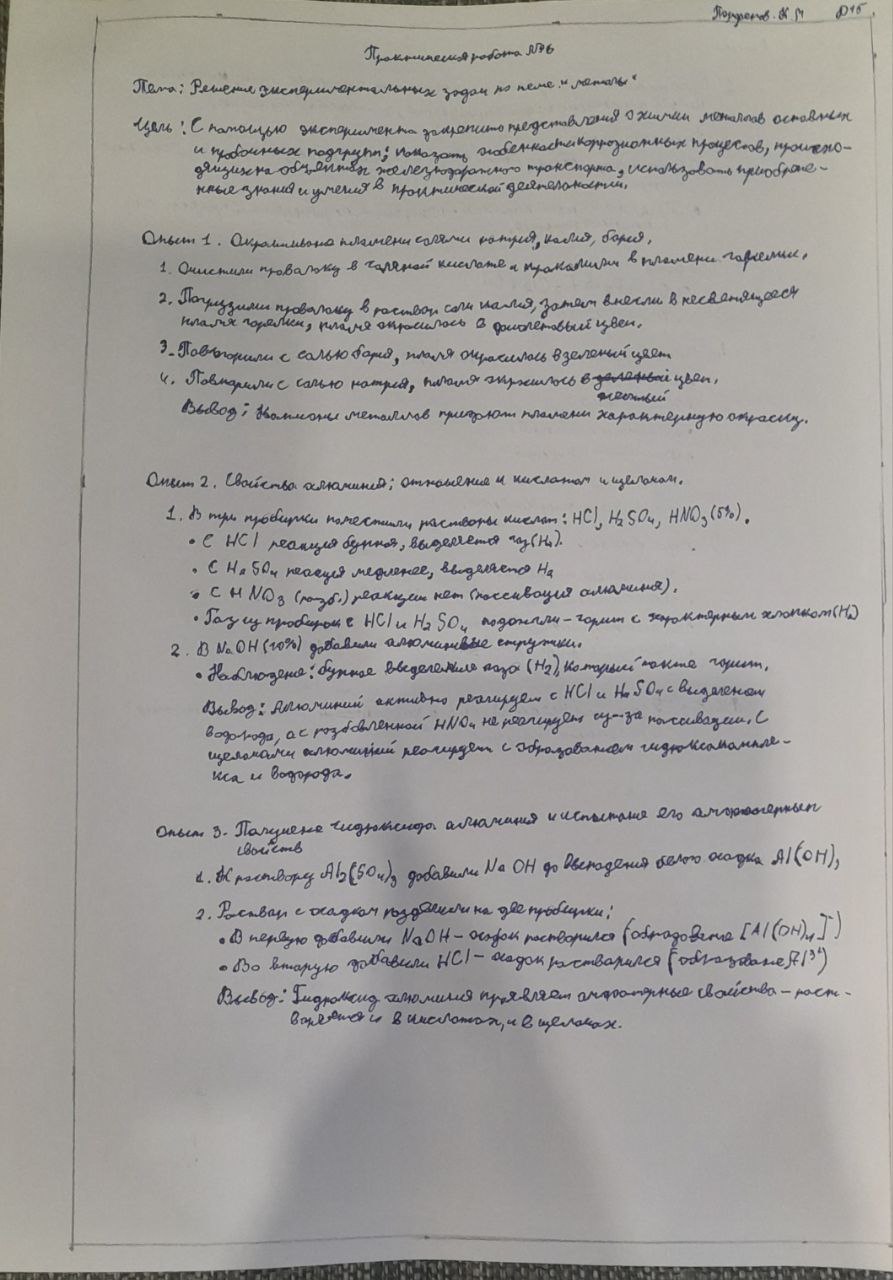 К.М
Практическая работа №6
Тема: Решение экспериментальных задач по теме "металы"
Цель: С помощью эксперимента закрепить представления о химии металлов оставных
и пробочных подгрупп; показать особенности коррозионных процессов, происхо-
дящих на объектах железнодорожного транспорта, использовать приобрете-
нные знания и умения в практической деятельности.
Опыт 1. Окрашивание пламени солями натрия, калия, бария.
1. Очистили проволоку в соляной кислоте и прокалили в пламени горелки.
2. Погрузили проволоку в раствор соли калия, затем внесли в несветящееся
пламя горелки, пламя окрасилось в фиолетовый цвет.
3. Повторили с солью бария, пламя окрасилось в зеленый цвет
4. Повторили с солью натрия, пламя окрасилось в зеленый цвет.
желтый
Вывод: металлов придают пламени характерную окраску.
Опыт 2. Свойства алюминия; отношение к кислотам и щелокам.
1. В три пробирки поместили растворы кислот: HCl, H2SO4, HNO3 (5%).
• С HCl реакция бурная, выделяется газ (H2).
• С H2SO4 реакция медленее, выделяется H2
• С HNO3 (разб.) реакции нет (пассивация алюминия).
• Газ из пробирок с HCl и H2SO4 подожгли - горит с характерным хлопком (H2)
2. В NaOH (10%) добавили алюминивые стружки.
• Наблюдение: бурное выделение газа (H2), который также горит.
Вывод: Алюминий активно реагирует с HCl и H2SO4 с выделением
водорода, а с разбавленной HNO4 не реагирует из-за пассивации. С
щелоками алюминий реагирует с образованием гидроксокомпле-
кса и водорода.
Опыт 3. Получение гидроксида алюминия и испытание его амфотерных
свойств
1. К раствору Al2(SO4)3 добавили NaOH до выпадения белого осадка Al(OH)3
2. Раствор с осадком разделили на две пробирки:
• В первую добавили NaOH - осадок растворился (образование [Al(OH)4]-)
• Во вторую добавили HCl - осадок растварился (образование Al3+)
Вывод: Гидроксид алюминия проявляет амфотерные свойства - раст-
воряется и в кислотах, и в щелоках.